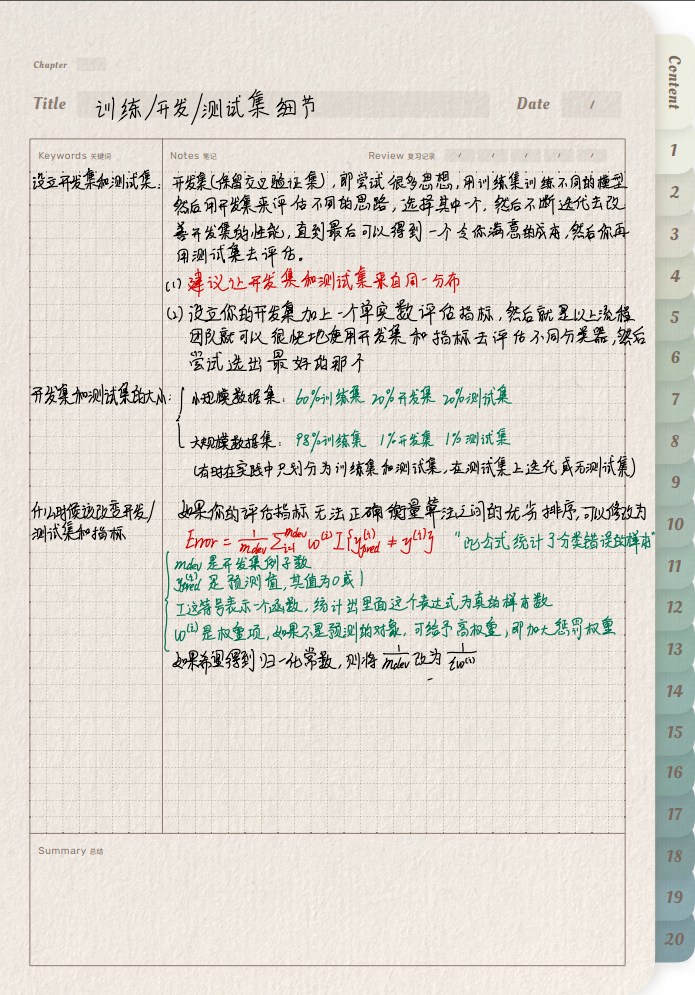 Chapter
Title 训练/开发/测试集细节 Date /
Content
Keywords 关键词
Notes 笔记
Review 复习记录 / / / / /
设立开发集和测试集：
开发集(保留交叉验证集)，即尝试很多思想，用训练集训练不同的模型
然后用开发集来评估不同的思路，选择其中一个，然后不断迭代去改
善开发集的性能，直到最后可以得到一个令你满意的成本，然后你再
用测试集去评估。
(1) 建议让开发集和测试集来自同一分布
(2) 设立你的开发集加上一个单实数评估指标，然后就是以上流程
团队就可以很快地使用开发集和指标去评估不同分类器，然后
尝试选出最好的那个
开发集和测试集的大小：
小规模数据集：60%训练集 20%开发集 20%测试集
大规模数据集：98%训练集 1%开发集 1%测试集
(有时在实践中只划分为训练集和测试集，在测试集上迭代或无测试集)
什么时候该改变开发/
测试集和指标
如果你的评估指标无法正确衡量算法之间的优劣排序，可以修改为
Error = 1/mdev ∑_{i=1}^{mdev} w^(i) I{y_pred^(i) ≠ y^(i)} "此公式统计了分类错误的样本"
mdev 是开发集例子数
y_pred^(i) 是预测值，其值为0或1
I这符号表示一个函数，统计出里面这个表达式为真的样本数
w^(i) 是权重项，如果不是预测的对象，可给予高权重，即加大惩罚权重
如果希望得到归一化常数，则将 1/mdev 改为 1/Σw^(i)
Summary 总结
1
2
3
4
5
6
7
8
9
10
11
12
13
14
15
16
17
18
19
20